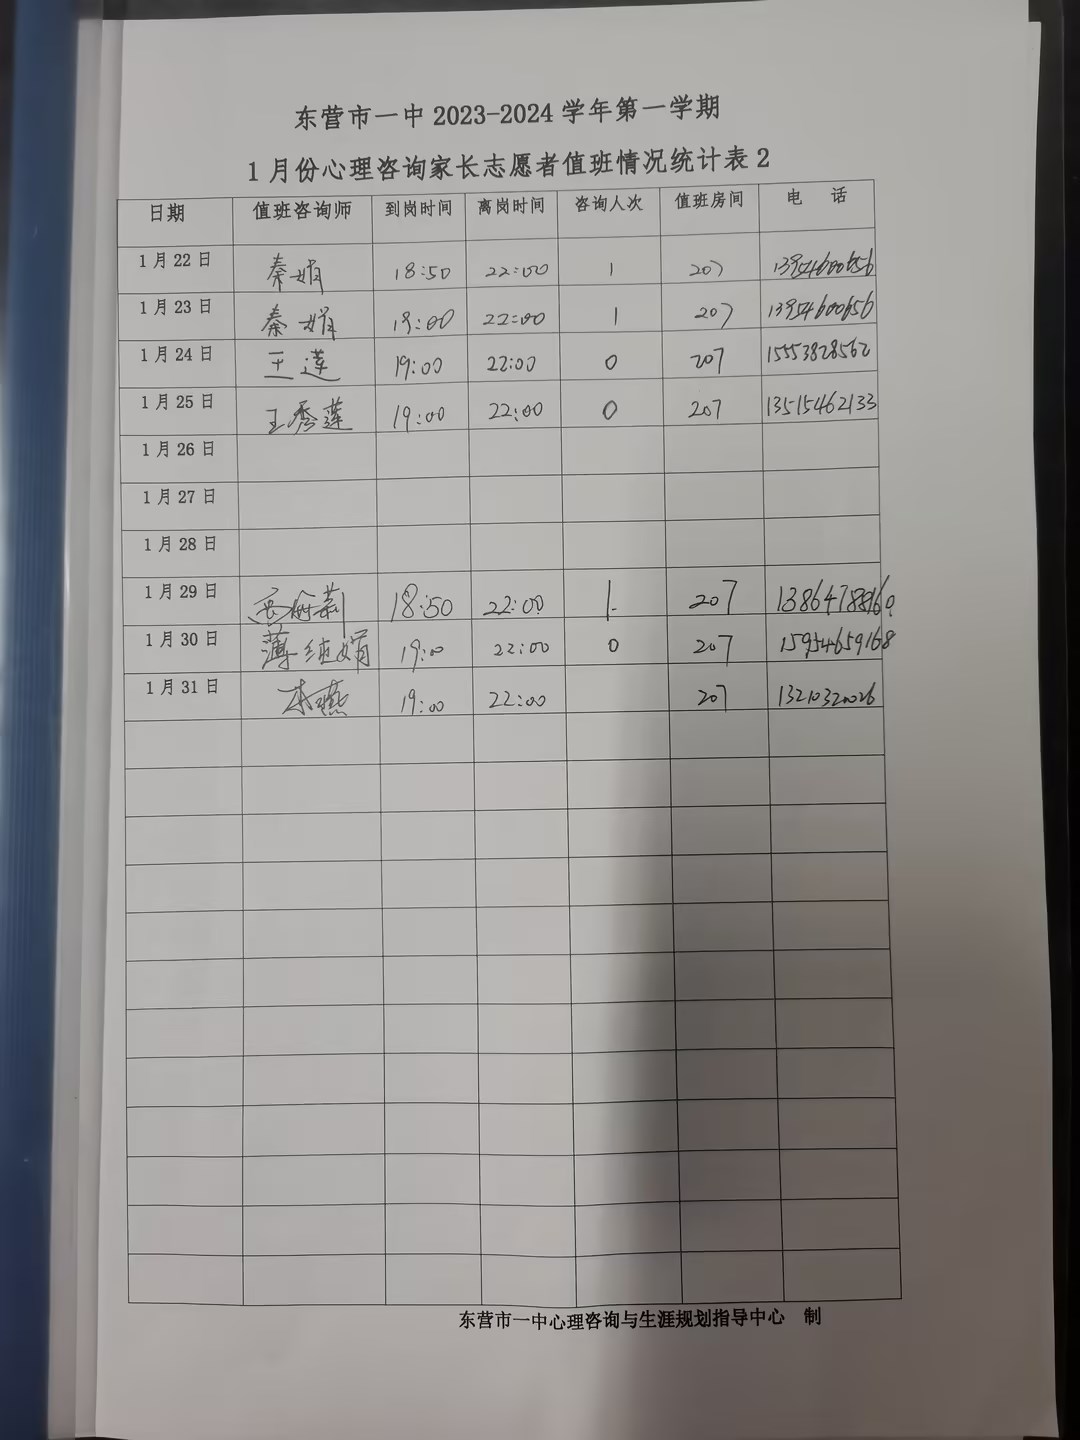 东营市一中 2023-2024 学年第一学期
1 月份心理咨询家长志愿者值班情况统计表 2
日期 值班咨询师 到岗时间 离岗时间 咨询人次 值班房间 电 话
1 月 22 日 秦娟 18:50 22:00 1 207 13954600656
1 月 23 日 秦娟 19:00 22:00 1 207 13954600656
1 月 24 日 王莲 19:00 22:00 0 207 15553828562
1 月 25 日 王秀莲 19:00 22:00 0 207 13515462133
1 月 26 日
1 月 27 日
1 月 28 日
1 月 29 日 18:50 22:00 1 207
1 月 30 日 薄纯娟 19:00 22:00 0 207 15954659168
1 月 31 日 李燕 19:00 22:00 207
东营市一中心理咨询与生涯规划指导中心 制